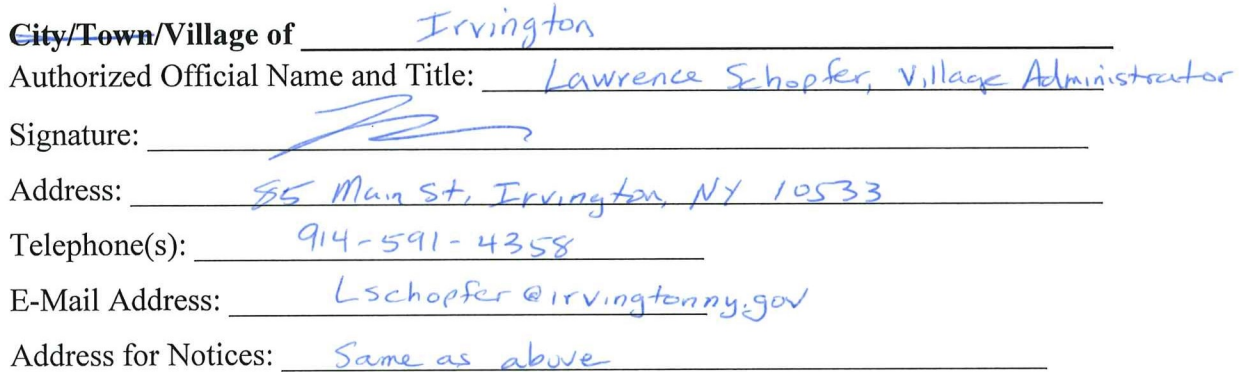 City/Town/Village of Irvington
Authorized Official Name and Title: Lawrence Schopfer, Village Administrator
Signature:
Address: 85 Main St, Irvington, NY 10533
Telephone(s): 914-591-4358
E-Mail Address: Lschopfer@irvingtonny.gov
Address for Notices: Same as above